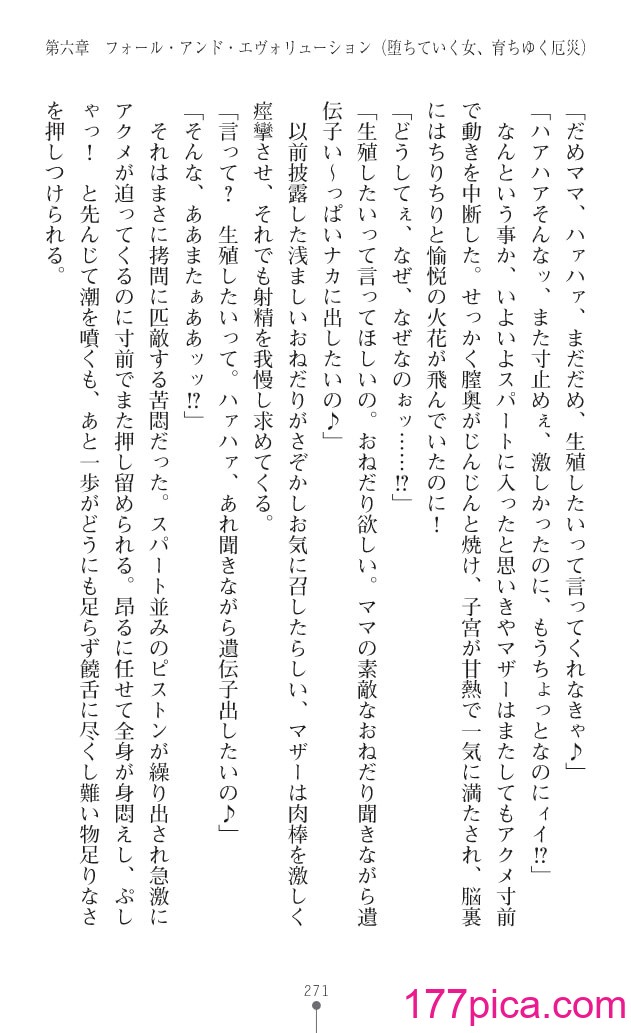 第六章　フォール・アンド・エヴォリューション（堕ちていく女、育ちゆく厄災）
「だめママ、ハァハァ、まだだめ、生殖したいって言ってくれなきゃ♪」
「ハアハアそんなッ、また寸止めぇ、激しかったのに、もうちょっとなのにィイ!?」
　なんという事か、いよいよスパートに入ったと思いきやマザーはまたしてもアクメ寸前
で動きを中断した。せっかく膣奥がじんじんと焼け、子宮が甘熱で一気に満たされ、脳裏
にはちりちりと愉悦の火花が飛んでいたのに！
「どうしてぇ、なぜ、なぜなのぉッ……!?」
「生殖したいって言ってほしいの。おねだり欲しい。ママの素敵なおねだり聞きながら遺
伝子い〜っぱいナカに出したいの♪」
　以前披露した浅ましいおねだりがさぞかしお気に召したらしい、マザーは肉棒を激しく
痙攣させ、それでも射精を我慢し求めてくる。
「言って？　生殖したいって。ハァハァ、あれ聞きながら遺伝子出したいの♪」
「そんな、ああまたぁああッッ!?」
　それはまさに拷問に匹敵する苦悶だった。スパート並みのピストンが繰り出され急激に
アクメが迫ってくるのに寸前でまた押し留められる。昂るに任せて全身が身悶えし、ぷし
ゃっ！　と先んじて潮を噴くも、あと一歩がどうにも足らず饒舌に尽くし難い物足りなさ
を押しつけられる。
271
177pica.com